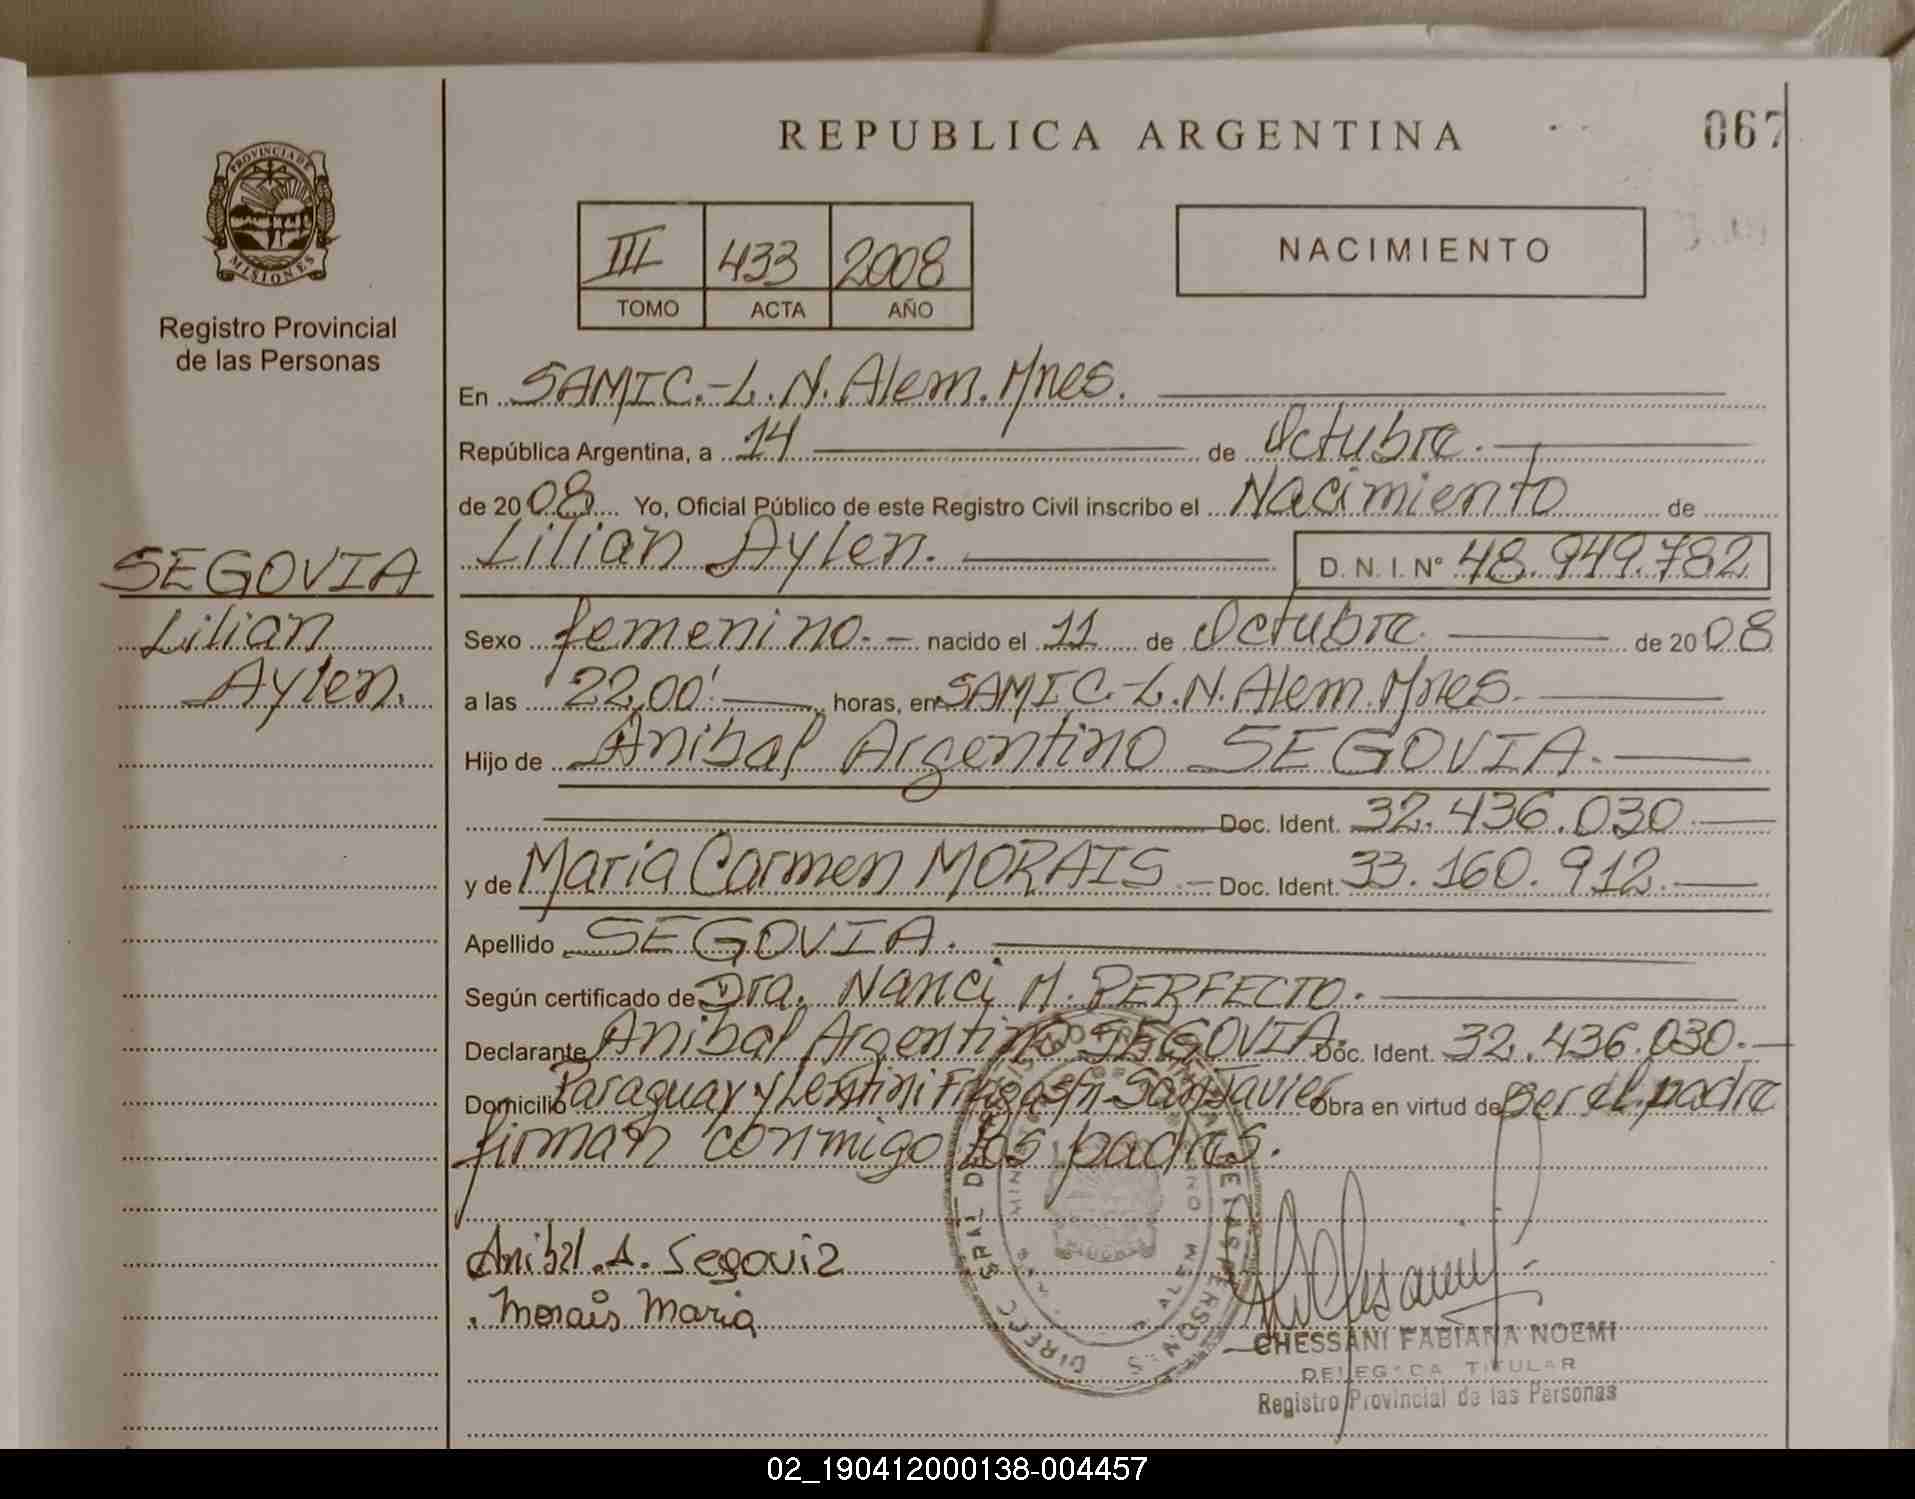 REPUBLICA ARGENTINA
067
PROVINCIA DE
MISIONES
Registro Provincial
de las Personas
III 433 2008
TOMO ACTA AÑO
NACIMIENTO
En SAMIC.-L.N. Alem. Mnes.
República Argentina, a 14 de Octubre.
de 2008 Yo, Oficial Público de este Registro Civil inscribo el Nacimiento de
Lilian Aylen. D. N. I. N° 48.949.782
SEGOVIA
Lilian
Aylen.
Sexo femenino.- nacido el 11 de Octubre. de 2008
a las 22,00' horas, en SAMIC.-L.N. Alem. Mnes.
Hijo de Anibal Argentino SEGOVIA.
Doc. Ident. 32.436.030
y de Maria Carmen MORAIS.- Doc. Ident. 33.160.912.
Apellido SEGOVIA.
Según certificado de Dra. Nanci M. PERFECTO.
Declarante Anibal Argentino SEGOVIA. Doc. Ident. 32.436.030.
Domicilio Paraguay y Lentini San Javier Obra en virtud de ser el padre
firman conmigo los padres.
Anibal. A. Segovia
. Morais Maria
CHESSANI FABIANA NOEMI
DELEGADA TITULAR
Registro Provincial de las Personas
02_190412000138-004457